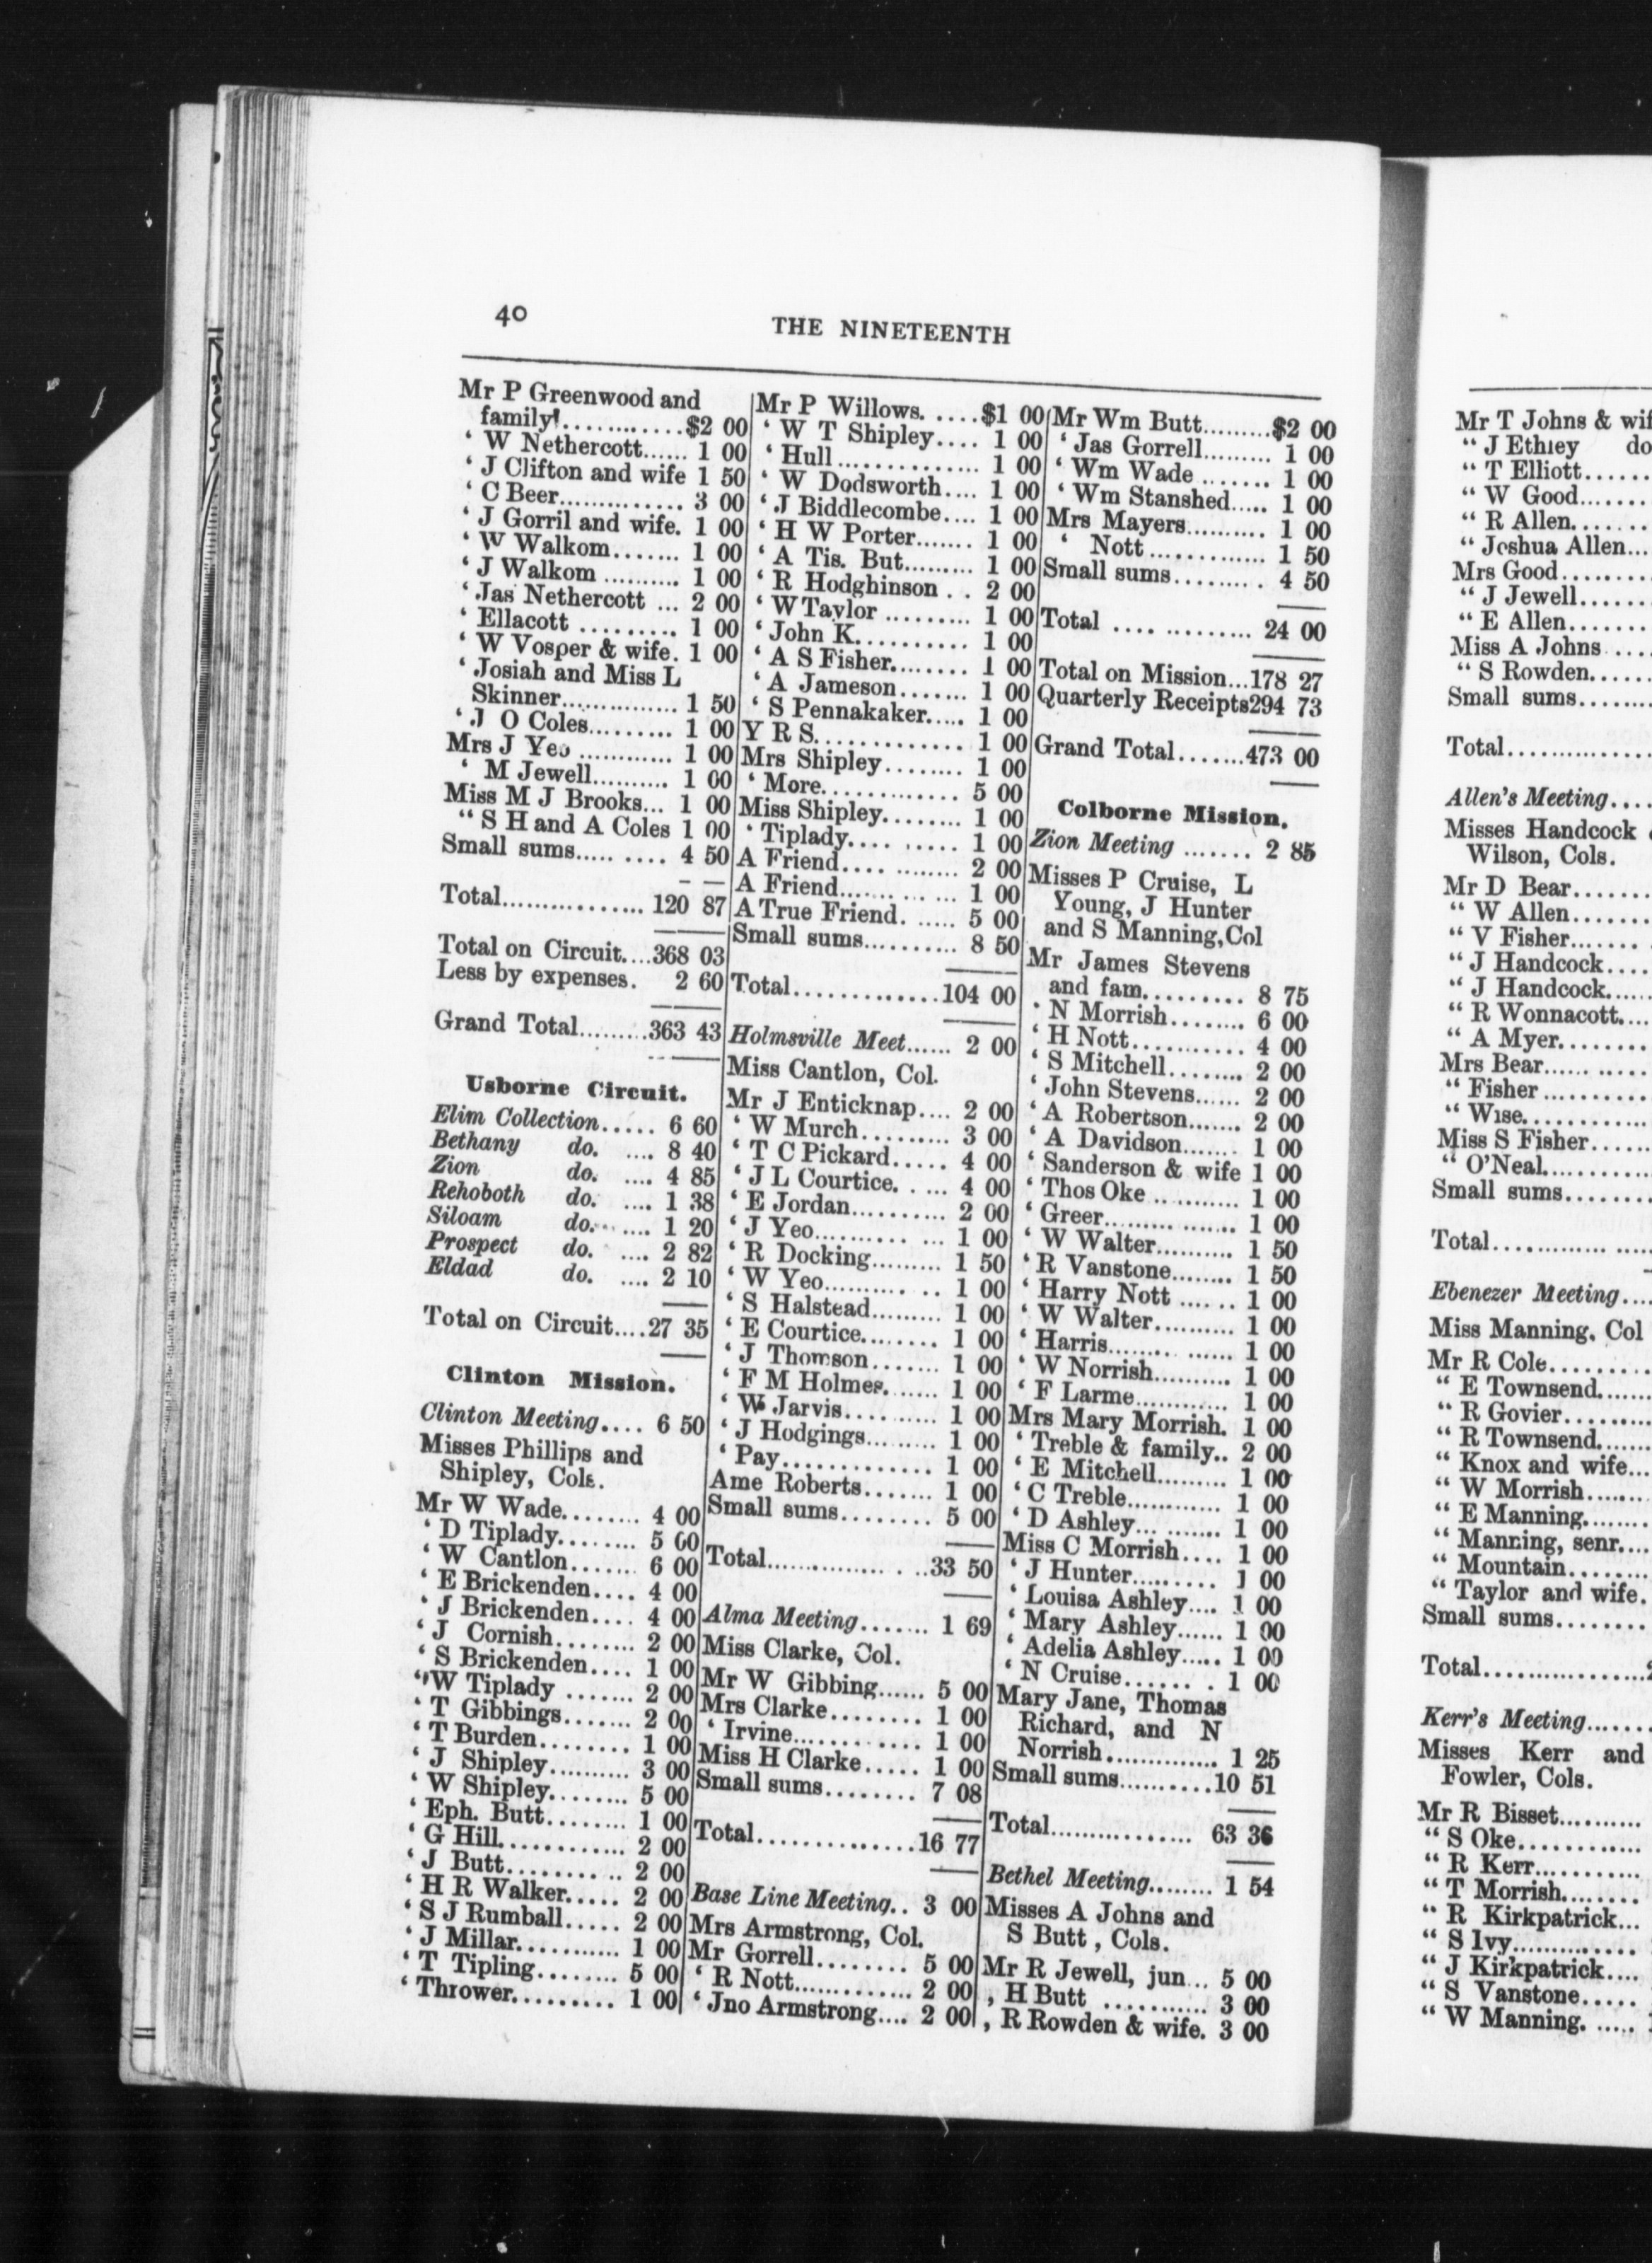 40
THE NINETEENTH
Mr P Greenwood and
family............$2 00
‘ W Nethercott...... 1 00
‘ J Clifton and wife 1 50
‘ C Beer.............. 3 00
‘ J Gorril and wife. 1 00
‘ W Walkom....... 1 00
‘ J Walkom .......... 1 00
‘ Jas Nethercott ... 2 00
‘ Ellacott .......... 1 00
‘ W Vosper & wife. 1 00
‘ Josiah and Miss L
Skinner.............. 1 50
‘ J O Coles......... 1 00
Mrs J Yeo ............ 1 00
‘ M Jewell.......... 1 00
Miss M J Brooks... 1 00
“ S H and A Coles 1 00
Small sums..... .... 4 50
Total................ 120 87
Total on Circuit....368 03
Less by expenses. 2 60
Grand Total.........363 43
Usborne Circuit.
Elim Collection..... 6 60
Bethany do. .... 8 40
Zion do. .... 4 85
Rehoboth do. .... 1 38
Siloam do. .... 1 20
Prospect do. .... 2 82
Eldad do. .... 2 10
Total on Circuit....27 35
Clinton Mission.
Clinton Meeting.... 6 50
Misses Phillips and
Shipley, Cols.
Mr W Wade........ 4 00
‘ D Tiplady........ 5 00
‘ W Cantlon....... 6 00
‘ E Brickenden.... 4 00
‘ J Brickenden.... 4 00
‘ J Cornish........ 2 00
‘ S Brickenden.... 1 00
“ W Tiplady ....... 2 00
‘ T Gibbings....... 2 00
‘ T Burden........ 1 00
‘ J Shipley.......... 3 00
‘ W Shipley........ 5 00
‘ Eph. Butt......... 1 00
‘ G Hill............ 2 00
‘ J Butt........... 2 00
‘ H R Walker..... 2 00
‘ S J Rumball..... 2 00
‘ J Millar........... 1 00
‘ T Tipling........ 5 00
‘ Thrower.......... 1 00
Mr P Willows. ....$1 00
‘ W T Shipley.... 1 00
‘ Hull .............. 1 00
‘ W Dodsworth.... 1 00
‘ J Biddlecombe.... 1 00
‘ H W Porter....... 1 00
‘ A Tis. But......... 1 00
‘ R Hodghinson . . 2 00
‘ W Taylor ......... 1 00
‘ John K........... 1 00
‘ A S Fisher........ 1 00
‘ A Jameson....... 1 00
‘ S Pennakaker..... 1 00
Y R S.............. 1 00
Mrs Shipley........ 1 00
‘ More............. 5 00
Miss Shipley........ 1 00
‘ Tiplady.... ..... 1 00
A Friend.... ........ 2 00
A Friend............ 1 00
A True Friend. ..... 5 00
Small sums.......... 8 50
Total..............104 00
Holmsville Meet...... 2 00
Miss Cantlon, Col.
Mr J Enticknap.... 2 00
‘ W Murch......... 3 00
‘ T C Pickard..... 4 00
‘ J L Courtice. . ... 4 00
‘ E Jordan.......... 2 00
‘ J Yeo.......... ... 1 00
‘ R Docking......... 1 50
‘ W Yeo.......... .. 1 00
‘ S Halstead......... 1 00
‘ E Courtice........ 1 00
‘ J Thomson....... 1 00
‘ F M Holmes...... 1 00
‘ W Jarvis.......... 1 00
‘ J Hodgings......... 1 00
‘ Pay.............. 1 00
Ame Roberts....... 1 00
Small sums......... 5 00
Total.............. . ..33 50
Alma Meeting....... 1 69
Miss Clarke, Col.
Mr W Gibbing...... 5 00
Mrs Clarke......... 1 00
‘ Irvine............. 1 00
Miss H Clarke..... 1 00
Small sums......... 7 08
Total...............16 77
Base Line Meeting.. 3 00
Mrs Armstrong, Col.
Mr Gorrell......... 5 00
‘ R Nott............ 2 00
‘ Jno Armstrong.... 2 00
Mr Wm Butt.........$2 00
‘ Jas Gorrell......... 1 00
‘ Wm Wade ....... 1 00
‘ Wm Stanshed..... 1 00
Mrs Mayers.......... 1 00
‘ Nott ............. 1 50
Small sums......... . 4 50
Total .... .......... 24 00
Total on Mission...178 27
Quarterly Receipts294 73
Grand Total.......473 00
Colborne Mission.
Zion Meeting ....... 2 85
Misses P Cruise, L
Young, J Hunter
and S Manning,Col
Mr James Stevens
and fam.......... 8 75
‘ N Morrish........ 6 00
‘ H Nott........... 4 00
‘ S Mitchell........ 2 00
‘ John Stevens...... 2 00
‘ A Robertson....... 2 00
‘ A Davidson....... 1 00
‘ Sanderson & wife 1 00
‘ Thos Oke .......... 1 00
‘ Greer............... 1 00
‘ W Walter.......... 1 50
‘ R Vanstone........ 1 50
‘ Harry Nott ...... 1 00
‘ W Walter.......... 1 00
‘ Harris........ ...... 1 00
‘ W Norrish.......... 1 00
‘ F Larme............ 1 00
Mrs Mary Morrish. 1 00
‘ Treble & family.. 2 00
‘ E Mitchell......... 1 00
‘ C Treble............ 1 00
‘ D Ashley... ....... 1 00
Miss C Morrish.... 1 00
‘ J Hunter.......... 1 00
‘ Louisa Ashley.... 1 00
‘ Mary Ashley...... 1 00
‘ Adelia Ashley..... 1 00
‘ N Cruise...... . 1 00
Mary Jane, Thomas
Richard, and N
Norrish.............. 1 25
Small sums..........10 51
Total................ 63 36
Bethel Meeting........ 1 54
Misses A Johns and
S Butt , Cols.
Mr R Jewell, jun... 5 00
, H Butt ........... 3 00
, R Rowden & wife. 3 00
Mr T Johns & wif
“ J Ethiey do
“ T Elliott......
“ W Good.......
“ R Allen.......
“ Joshua Allen...
Mrs Good.........
“ J Jewell.......
“ E Allen.......
Miss A Johns ....
“ S Rowden......
Small sums........
Total..............
Allen's Meeting....
Misses Handcock
Wilson, Cols.
Mr D Bear.......
“ W Allen.......
“ V Fisher.......
“ J Handcock....
“ J Handcock.....
“ R Wonnacott....
“ A Myer........
Mrs Bear...........
“ Fisher ..........
“ Wise...........
Miss S Fisher......
“ O'Neal..........
Small sums........
Total..............
Ebenezer Meeting....
Miss Manning, Col
Mr R Cole.........
“ E Townsend......
“ R Govier.........
“ R Townsend......
“ Knox and wife...
“ W Morrish.......
“ E Manning.......
“ Manning, senr....
“ Mountain........
“ Taylor and wife.
Small sums........
Total................
Kerr's Meeting......
Misses Kerr and
Fowler, Cols.
Mr R Bisset.........
“ S Oke...........
“ R Kerr...........
“ T Morrish........
“ R Kirkpatrick...
“ S Ivy.............
“ J Kirkpatrick....
“ S Vanstone.....
“ W Manning. .....